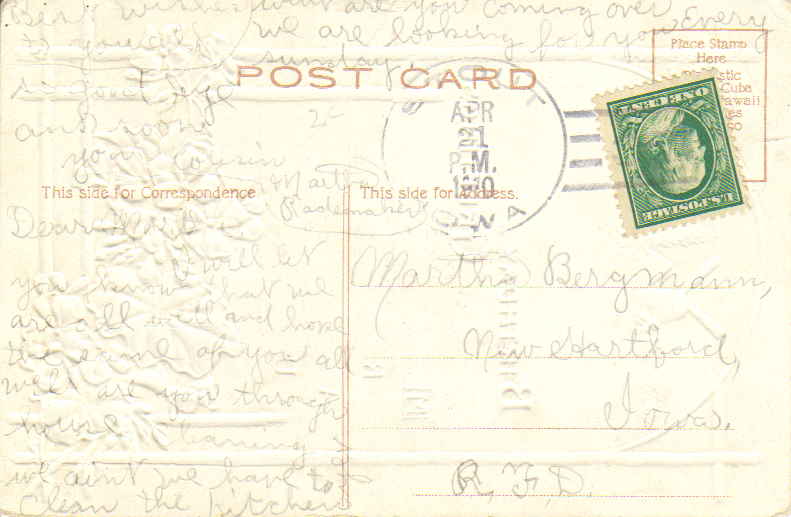 Best wishes what are you coming over
to you all we are looking for you every
sunday.
POST CARD
Place Stamp
Here
and soon
2
your cousin
Martha
Rademaker
APR
21
P.M.
1910
IOWA
ONE CENT
U.S. POSTAGE
This side for Correspondence
This side for Address.
Dear Martha
I will let
you know that we
are all well and hope
the same of you all
well are you through
house cleaning
we ain't we have to
clean the kitchen
Martha Bergmann,
New Hartford,
Iowa.
R. F. D.